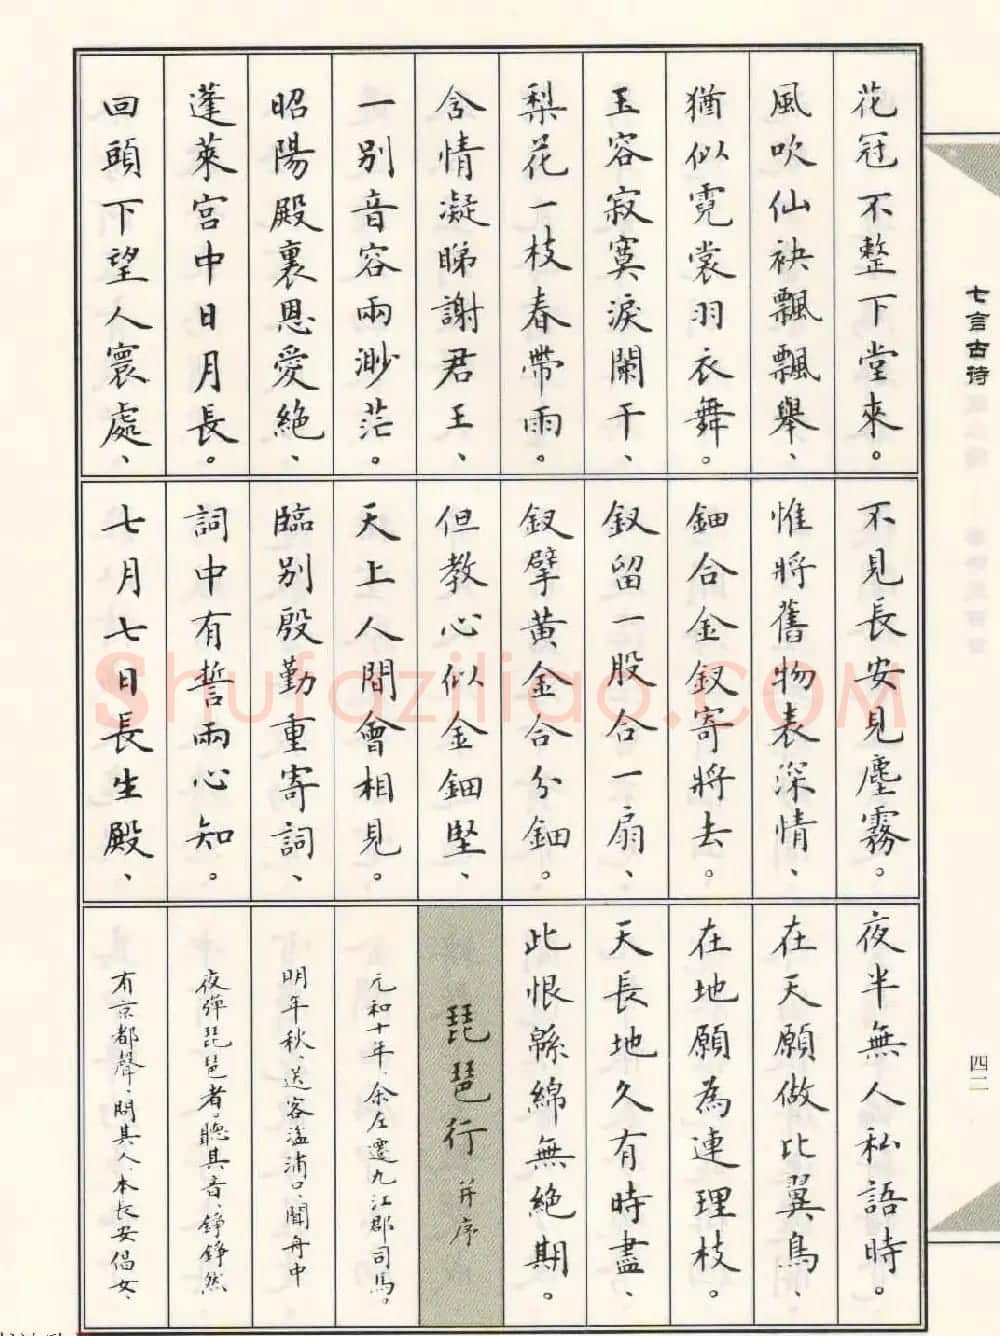 花冠不整下堂來。
風吹仙袂飄飄舉、
猶似霓裳羽衣舞。
玉容寂寞淚闌干、
梨花一枝春帶雨。
含情凝睇謝君王、
一別音容兩渺茫。
昭陽殿裏恩愛絕、
蓬萊宮中日月長。
回頭下望人寰處、
不見長安見塵霧。
惟將舊物表深情、
鈿合金釵寄將去。
釵留一股合一扇、
釵擘黃金合分鈿。
但教心似金鈿堅、
天上人間會相見。
臨別殷勤重寄詞、
詞中有誓兩心知。
七月七日長生殿、
夜半無人私語時。
在天願做比翼鳥、
在地願為連理枝。
天長地久有時盡、
此恨緜綿無絕期。
琵琶行 并序
元和十年、余左遷九江郡司馬。
明年秋、送客湓浦口、聞舟中
夜彈琵琶者、聽其音、錚錚然
有京都聲、問其人、本長安倡女、
七言古诗
四二
Shufaziliao.COM